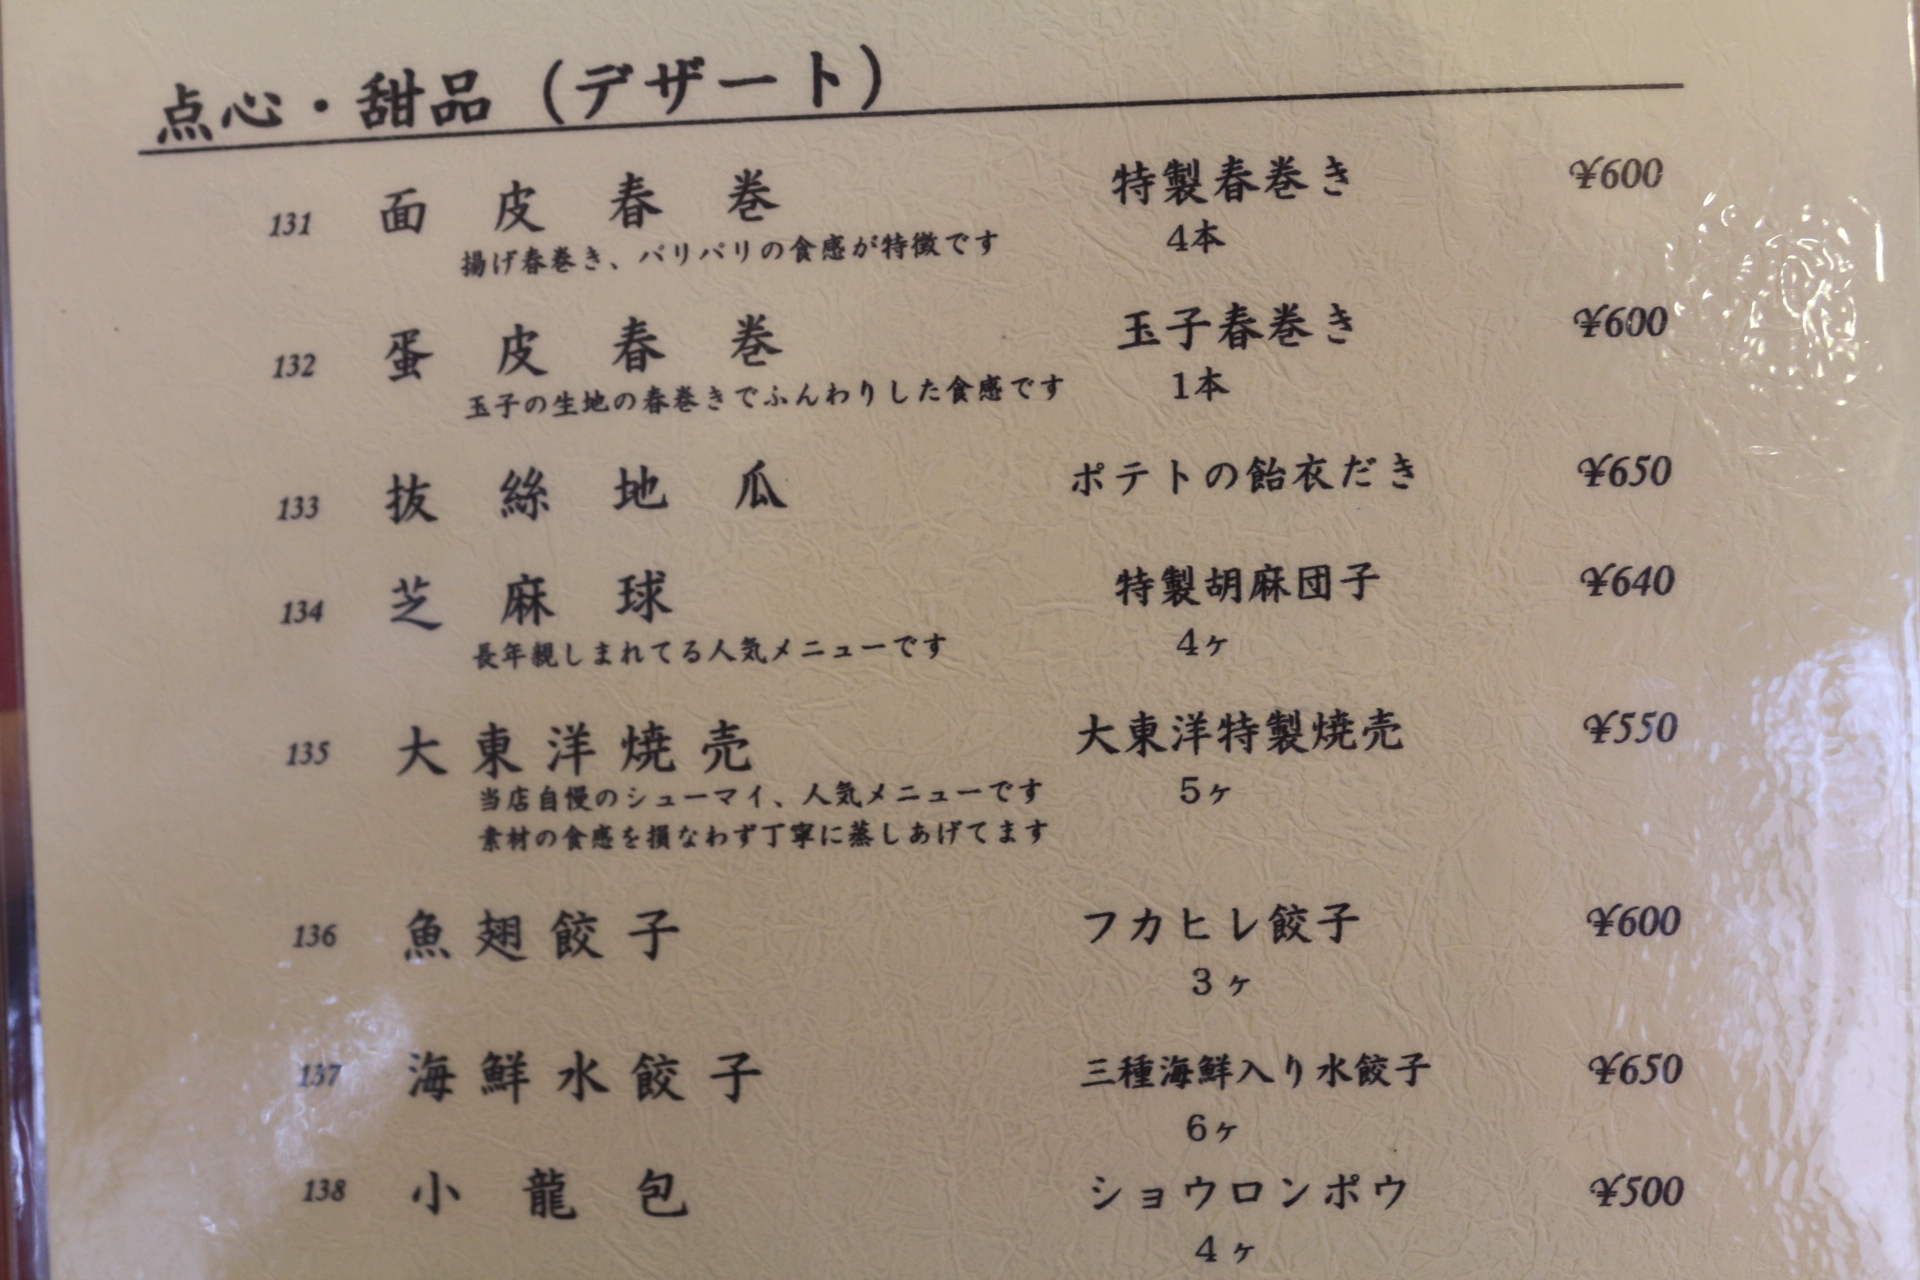 点心・甜品（デザート）
131 面皮春巻 特製春巻き ¥600
揚げ春巻き、パリパリの食感が特徴です 4本
132 蛋皮春巻 玉子春巻き ¥600
玉子の生地の春巻きでふんわりした食感です 1本
133 抜絲地瓜 ポテトの飴衣だき ¥650
134 芝麻球 特製胡麻団子 ¥640
長年親しまれてる人気メニューです 4ヶ
135 大東洋焼売 大東洋特製焼売 ¥550
当店自慢のシューマイ、人気メニューです 5ヶ
素材の食感を損なわず丁寧に蒸しあげてます
136 魚翅餃子 フカヒレ餃子 ¥600
3ヶ
137 海鮮水餃子 三種海鮮入り水餃子 ¥650
6ヶ
138 小龍包 ショウロンポウ ¥500
4ヶ